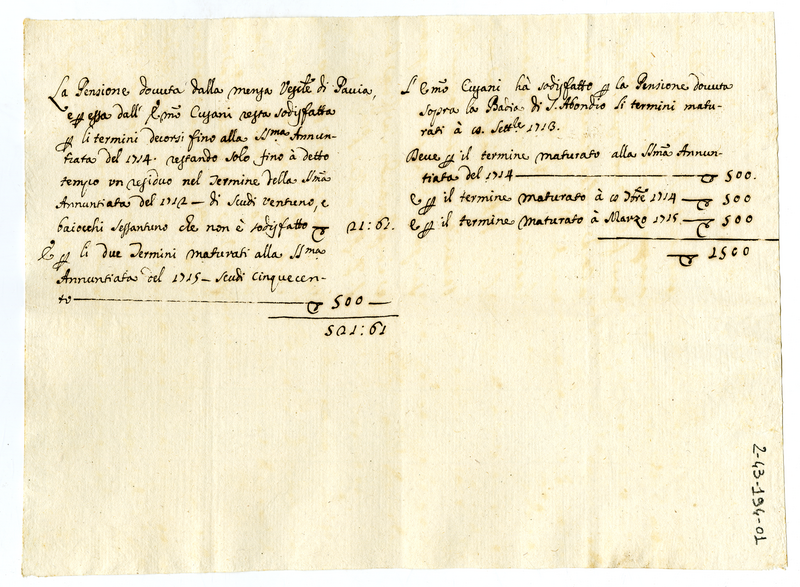 La Pensione dovuta dalla mensa Vesc.le di Pavia,
e p essa dall' E.mo Cusani resta sodisfatta
p li termini decorsi fino alla SS.ma Annun-
tiata del 1714. restando solo fino à detto
tempo vn residuo nel Termine della SS.ma
Annuntiata del 1712 – di Scudi ventuno, e
baiocchi sessantuno che non è sodisfatto 21:61.
E p li due Termini maturati alla SS.ma
Annuntiata del 1715 – scudi cinquecen-
to 500 –
521:61
L' E.mo Cusani hà sodisfatto p la Pensione dovuta
sopra la Badia di S. Abondio li termini matu-
rati à 10. Sett.le 1713.
Deve p il termine maturato alla SS.ma Annun-
tiata del 1714 500.
e p il termine maturato à 10 7bre 1714 500
e p il termine maturato à Marzo 1715 500
1500
2-43-194-01